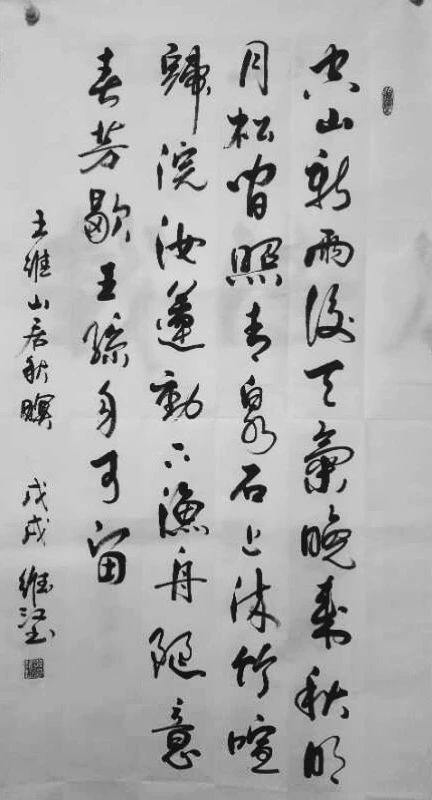 空山新雨後天氣晚來秋明
月松間照青泉石上流竹喧
歸浣汝蓮動下漁舟隨意
春芳歇王孫自可留
王維山居秋暝 戊戌 維